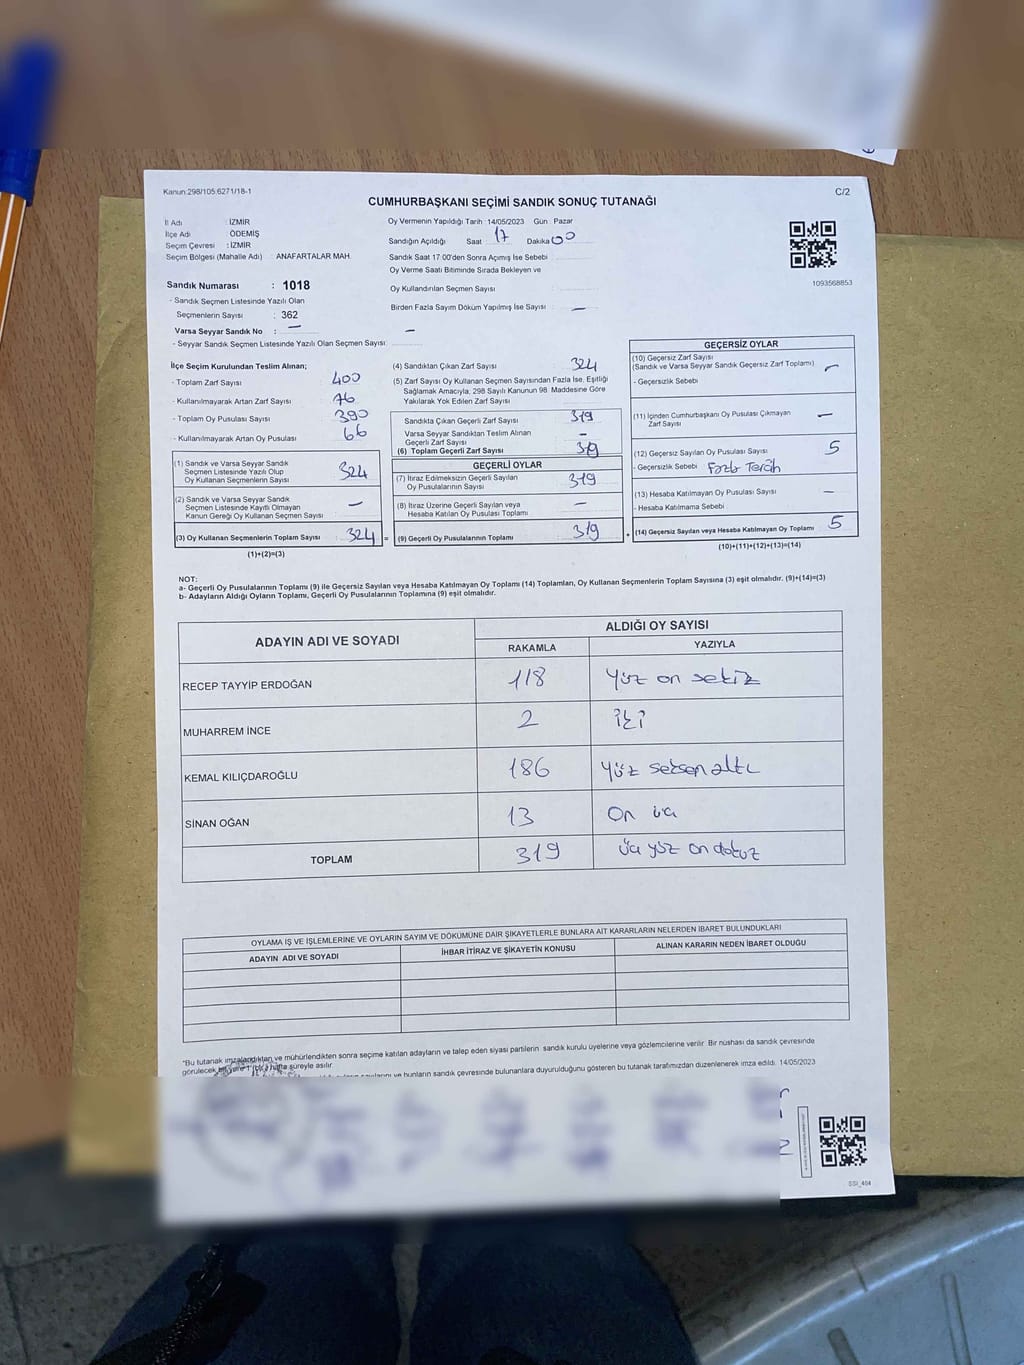 Kanun:298/105,6271/18-1
C/2
CUMHURBAŞKANI SEÇİMİ SANDIK SONUÇ TUTANAĞI
İl Adı : İZMİR
İlçe Adı : ÖDEMİŞ
Seçim Çevresi : İZMİR
Seçim Bölgesi (Mahalle Adı) : ANAFARTALAR MAH.
Sandık Numarası : 1018
- Sandık Seçmen Listesinde Yazılı Olan
Seçmenlerin Sayısı : 362
Varsa Seyyar Sandık No : —
- Seyyar Sandık Seçmen Listesinde Yazılı Olan Seçmen Sayısı: —
Oy Vermenin Yapıldığı Tarih :14/05/2023 Gün : Pazar
Sandığın Açıldığı Saat : 17 Dakika : 00
Sandık Saat 17.00'den Sonra Açılmış İse Sebebi
Oy Verme Saati Bitiminde Sırada Bekleyen ve
Oy Kullandırılan Seçmen Sayısı :
Birden Fazla Sayım Döküm Yapılmış İse Sayısı : —
1093568853
İlçe Seçim Kurulundan Teslim Alınan;
- Toplam Zarf Sayısı : 400
- Kullanılmayarak Artan Zarf Sayısı : 76
- Toplam Oy Pusulası Sayısı : 390
- Kullanılmayarak Artan Oy Pusulası : 66
(1) Sandık ve Varsa Seyyar Sandık
Seçmen Listesinde Yazılı Olup
Oy Kullanan Seçmenlerin Sayısı : 324
(2) Sandık ve Varsa Seyyar Sandık
Seçmen Listesinde Kayıtlı Olmayan
Kanun Gereği Oy Kullanan Seçmen Sayısı : —
(3) Oy Kullanan Seçmenlerin Toplam Sayısı : 324
(1)+(2)=(3)
=
(4) Sandıktan Çıkan Zarf Sayısı : 324
(5) Zarf Sayısı Oy Kullanan Seçmen Sayısından Fazla İse, Eşitliği
Sağlamak Amacıyla, 298 Sayılı Kanunun 98. Maddesine Göre
Yakılarak Yok Edilen Zarf Sayısı
Sandıkta Çıkan Geçerli Zarf Sayısı : 319
Varsa Seyyar Sandıktan Teslim Alınan
Geçerli Zarf Sayısı : —
(6) Toplam Geçerli Zarf Sayısı : 319
GEÇERLİ OYLAR
(7) İtiraz Edilmeksizin Geçerli Sayılan
Oy Pusulalarının Sayısı : 319
(8) İtiraz Üzerine Geçerli Sayılan veya
Hesaba Katılan Oy Pusulası Toplamı : —
(9) Geçerli Oy Pusulalarının Toplamı : 319
+
GEÇERSİZ OYLAR
(10) Geçersiz Zarf Sayısı
(Sandık ve Varsa Seyyar Sandık Geçersiz Zarf Toplamı) : —
- Geçersizlik Sebebi :
(11) İçinden Cumhurbaşkanı Oy Pusulası Çıkmayan
Zarf Sayısı : —
(12) Geçersiz Sayılan Oy Pusulası Sayısı : 5
- Geçersizlik Sebebi : Fazla Tercih
(13) Hesaba Katılmayan Oy Pusulası Sayısı : —
- Hesaba Katılmama Sebebi :
(14) Geçersiz Sayılan veya Hesaba Katılmayan Oy Toplamı : 5
(10)+(11)+(12)+(13)=(14)
NOT:
a- Geçerli Oy Pusulalarının Toplamı (9) ile Geçersiz Sayılan veya Hesaba Katılmayan Oy Toplamı (14) Toplamları, Oy Kullanan Seçmenlerin Toplam Sayısına (3) eşit olmalıdır. (9)+(14)=(3)
b- Adayların Aldığı Oyların Toplamı, Geçerli Oy Pusulalarının Toplamına (9) eşit olmalıdır.
ADAYIN ADI VE SOYADI ALDIĞI OY SAYISI
RAKAMLA YAZIYLA
RECEP TAYYİP ERDOĞAN 118 Yüz on sekiz
MUHARREM İNCE 2 İki
KEMAL KILIÇDAROĞLU 186 Yüz seksen altı
SİNAN OĞAN 13 On üç
TOPLAM 319 üç yüz on dokuz
OYLAMA İŞ VE İŞLEMLERİNE VE OYLARIN SAYIM VE DÖKÜMÜNE DAİR ŞİKAYETLERLE BUNLARA AİT KARARLARIN NELERDEN İBARET BULUNDUKLARI
ADAYIN ADI VE SOYADI İHBAR İTİRAZ VE ŞİKAYETİN KONUSU ALINAN KARARIN NEDEN İBARET OLDUĞU
*Bu tutanak imzalandıktan ve mühürlendikten sonra seçime katılan adayların ve talep eden siyasi partilerin sandık kurulu üyelerine veya gözlemcilerine verilir. Bir nüshası da sandık çevresinde
görülecek bir yere 1 (bir) hafta süreyle asılır.
ve bunların sandık çevresinde bulunanlara duyurulduğunu gösteren bu tutanak tarafımızdan düzenlenerek imza edildi. 14/05/2023
SSİ_404